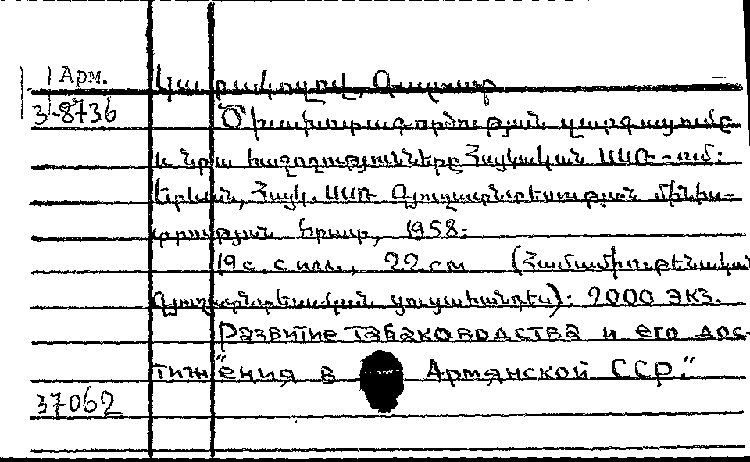 Арм.
3-8736
Կարակոզով, Գասպար
Ծխախոտագործության զարգացումը
և նրա հաջողությունները Հայկական ՍՍՌ-ում:
Երևան, Հայկ. ՍՍՌ Գյուղատնտեսության մինիս-
տրության հրատ, 1958:
19 с. с илл., 22 см (Համամիութենական
Գյուղատնտեսական ցուցահանդես): 2000 экз.
Развитие табаководства и его дос-
тижения в Армянской ССР."
37062